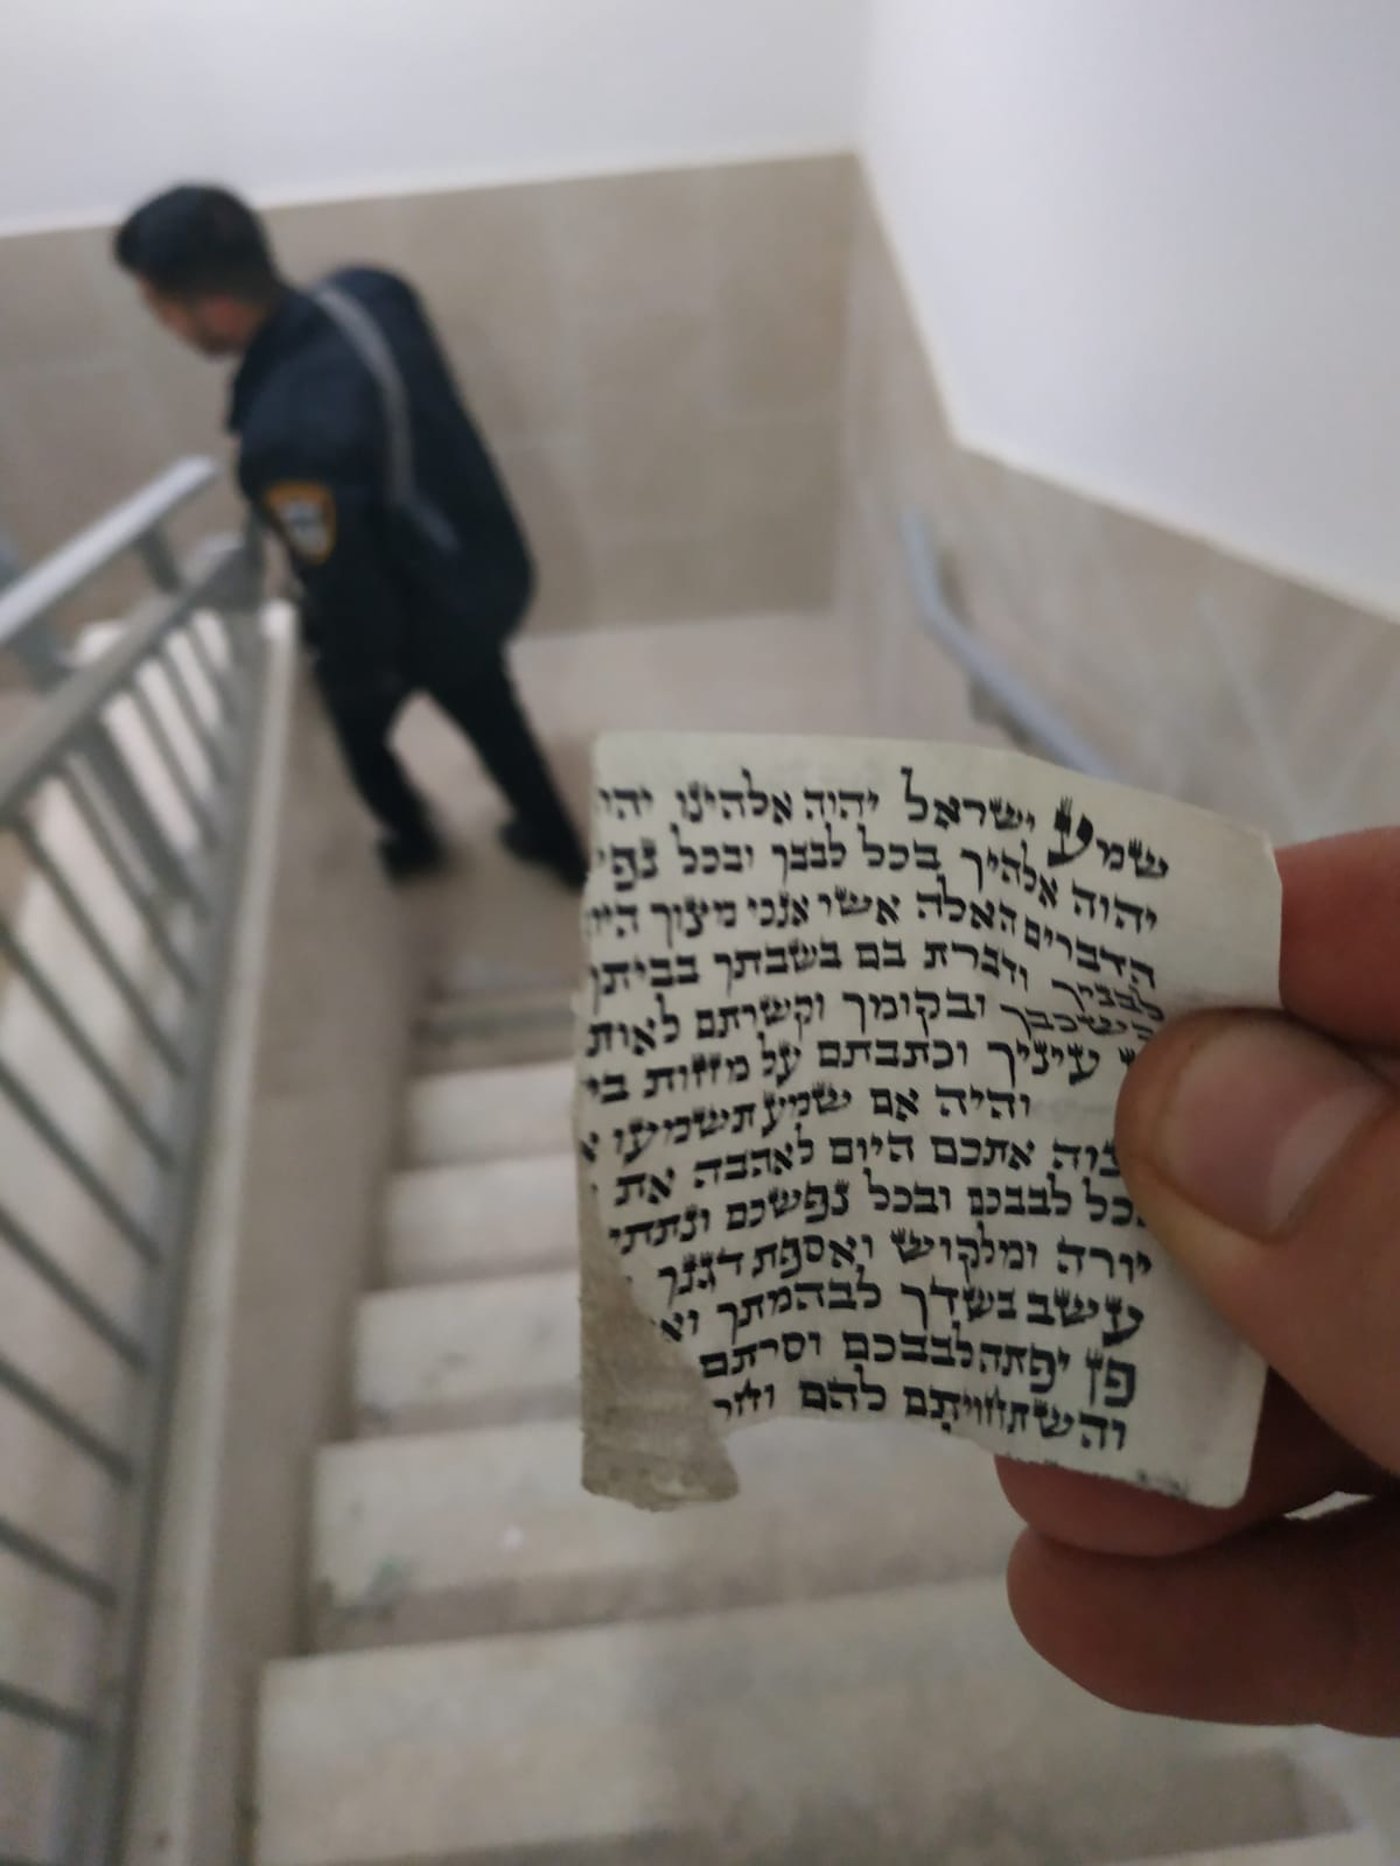 שמע ישראל יהוה אלהינו יהו
יהוה אלהיך בכל לבבך ובכל נפ
הדברים האלה אשר אנכי מצוך היו
לבניך ודברת בם בשבתך בביתך
בשכבך ובקומך וקשרתם לאות
עיניך וכתבתם על מזוזות בי
והיה אם שמע תשמעו א
צוה אתכם היום לאהבה את
בכל לבבכם ובכל נפשכם ונתתי
יורה ומלקוש ואספת דגנך
עשב בשדך לבהמתך וא
פן יפתה לבבכם וסרתם
והשתחויתם להם וחר